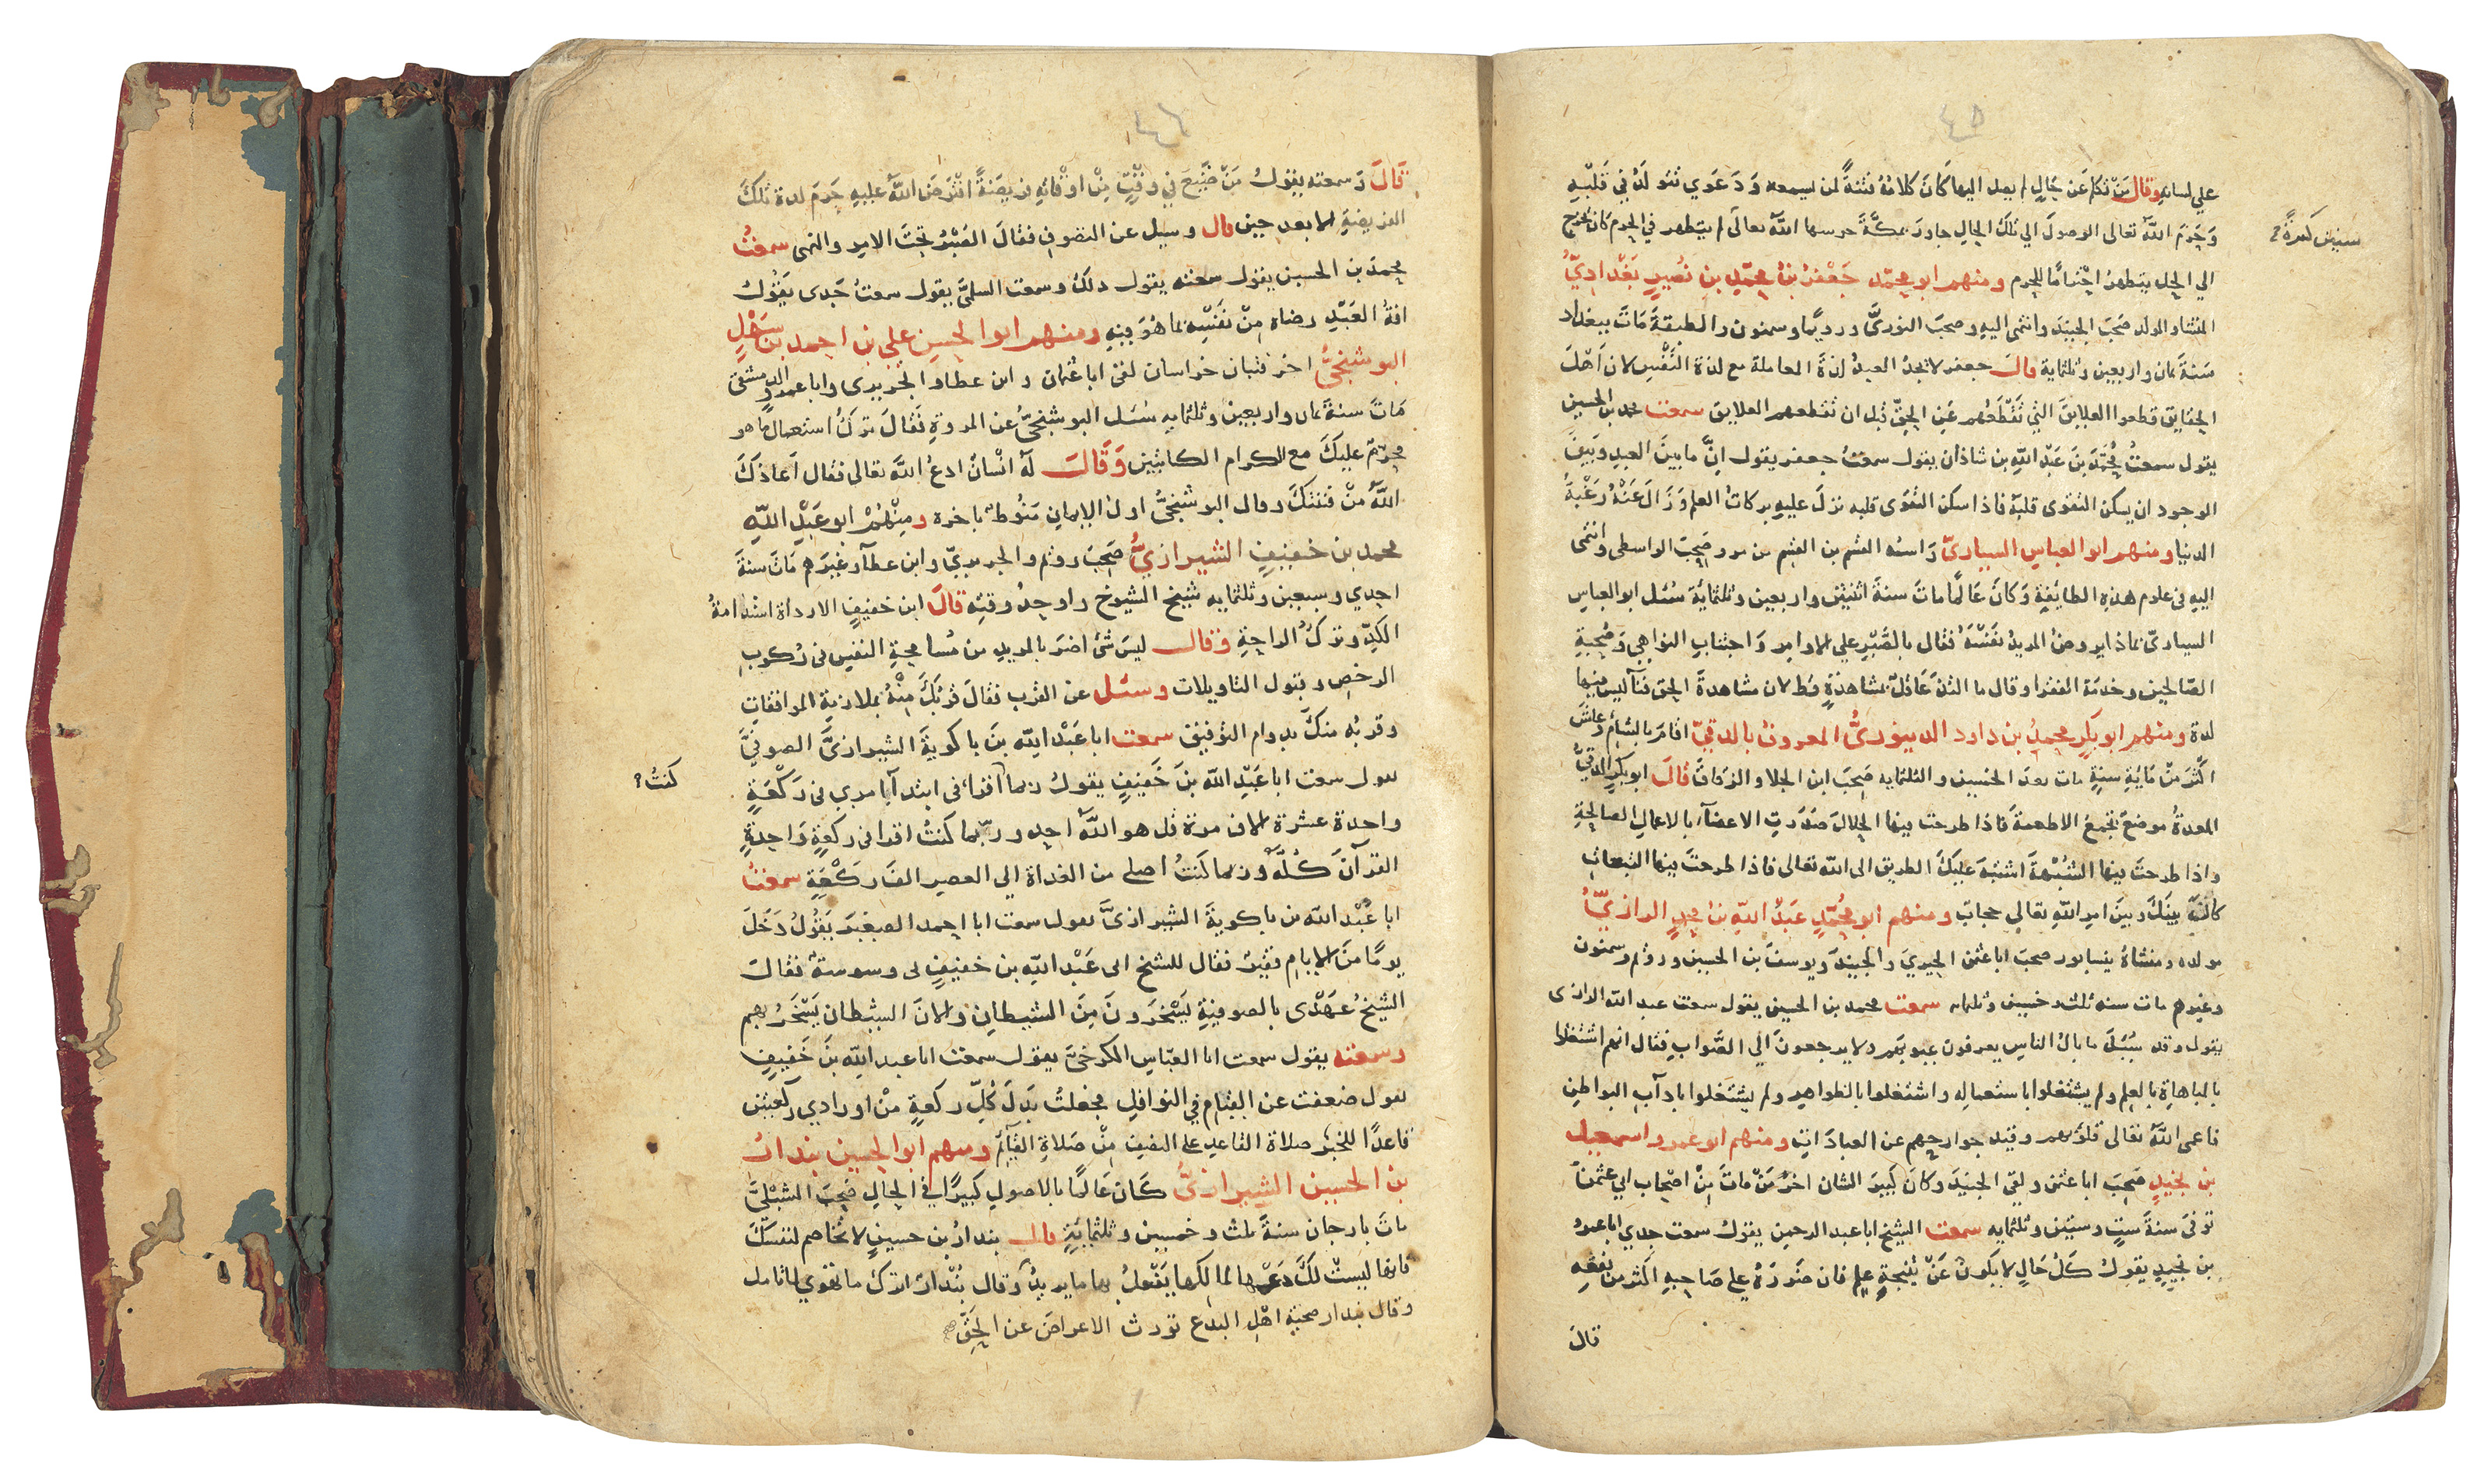 ٤٥
على لسانه وقال مَن تكلم عَن حَالٍ لم يصل اليها كَانَ كلامُهُ فتنةً لمن يسمعه وَدَعوَى تتولدُ في قَلبِهِ
وَحَرَمَه اللّٰهُ تعالى الوصولَ الى تلك الحالِ جاورَ بمكَّةَ حرسها اللّٰهُ تعالى لم يتطهر في الحرم كان يخرج
سنين كثيرةً
الى الحل يتطهرُ احتِرامًا للحرم ومنهم ابو محمّد جَعْفرُ بنُ محمّدِ بن نُصيرٍ بَغْداديُّ
المنشاء والمولد صَحِبَ الجنيدَ وانتمى اليهِ وصحبَ النوريَّ ورويمًا وسمنون والطبقةَ مَاتَ ببغداد
سَنَةَ ثمان واربعين وثلثماية قالَ جعفر لا يجدُ العبدُ لذةَ المعاملة مع لذة النَّفْسِ لان أهْلَ
الحقايق قطعوا العلايقَ التي تَقْطَعُهم عَنِ الحقِّ قبل ان تقطعهم العلايق سمعت محمد بن الحسين
يقول سمعتُ مُحمَّدَ بنَ عَبْدِ اللّٰهِ بن شاذان يقول سمعتُ جعفر يقول انَّ ما بينَ العبدِ وَبَينَ
الوجود ان يسكن التقوى قلبَهُ فاذا سكن التقوى قلبه نزلَ عليهِ بركاتُ العلمِ وَزَالَ عَنْهُ رَغْبَةُ
الدنيا ومنهم ابو العباس السيارىّ وَاسمه القسم بن القسم من مرو صَحِبَ الواسطى وانتمى
اليهِ في علوم هذهِ الطايفةِ وَكانَ عَالمًا ماتَ سنةَ اثنتين واربعين وثلثمايَةَ سُئل ابو العباس
السيارىّ بماذا يروضُ المريدُ نَفْسَهُ فقال بالصَّبْرِ على الاوامر وَاجتنابِ النواهي وَصُحبةِ
الصالحين وخدمَة الفقرا وقال ما التذَّ عَاقلٌ بمشاهدةٍ قط لان مشاهدةَ الحق فَنَآ ليسَ فيها
لذة ومنهم ابو بَكرٍ محمدُ بن داود الدينوريُّ المعروفُ بالدقيّ اقامَ بالشأم وعاش
اكثَرَ مِنْ مَايَةِ سنةٍ مات بعدَ الخمسين والثلثمايه صَحِبَ ابن الجلا والزقاقَ قالَ ابو بكرٍ الدقيُّ
المعدةُ موضعُ تجمعُ الاطعمةَ فاذا طرحت فيها الحلالَ صَدَرَتِ الاعضآء بالاعمالِ الصالحةِ
واذا طرحتَ فيها الشُبْهةَ اشتبهَ عليكَ الطريق الى اللّٰه تعالى فاذا طرحتَ فيها التبعات
كانتْ بينكَ وبينَ امرِ اللّٰهِ تعالى حجابٌ ومنهم ابو مُحمَّدٍ عَبدُ اللّٰهِ بنُ محمدٍ الرازىُّ
مولده ومنشاهُ نيسابور صحبَ ابا عثمن الحيريَ والجنيدَ ويوسفَ بن الحسين ورويم وسمنون
وغيرهم مات سنه ثلث وخمسين وثلثمايه سمعت محمد بن الحسين يقول سمعت عبد اللّٰه الرازى
يقول وقد سُئِلَ ما بالُ الناسِ يعرفون عيوبَهم ولا يرجعونَ الى الصَّوابِ فقال انهم اشتغلوا
بالمباهاةِ بالعِلم ولم يشتغلوا باستعمالِه واشتغلوا بالظواهرِ ولم يشتغلوا بادآبِ البواطِن
فاعمى اللّٰهُ تعالى قلوبَهم وقيد جوارحهم عن العبادَاتِ ومنهم ابو عمرو اسمعيل
بن نجيدٍ صَحِبَ ابا عثمن ولقى الجنيدَ وكانَ كبيرَ الشان اخرُ مَنْ ماتَ مِنْ اصحَابِ ابي عثمنَ
توفى سنةَ ستٍ وستين وثلثمايه سمعت الشيخ ابا عبد الرحمن يقولُ سمعت جدي ابا عمرو
بن نجيدٍ يقولُ كلُّ حَالٍ لا يكونُ عَنْ نتيجةِ علمٍ فان ضَررَهُ على صَاحبهِ اكثر من نفعِهِ
قالَ
٤٦
قالَ وَسمعته يقولُ مَنْ ضَيَّعَ في وَقْتٍ مِنْ اوقَاتِهِ فريضَةً افْتَرضَ اللّٰهُ عليهِ حَرَمَ لذة تلكَ
الفريضةِ الا بعد حين قال وسيل عن التصوف فقالَ الصَّبْرُ تحتَ الامرِ والنهى سمعْتُ
محمدَ بن الحسين يقول سمعته يقول ذلكَ وسمعت السلميَّ يقول سمعتُ جَدى يَقُولُ
افةُ العَبْدِ رضاه مِنْ نَفْسِهِ بما هُوَ فيه ومنهم ابو الحسين على بن احمد بن سَهْلٍ
البوشنجيُّ احد فتيان خراسان لقى ابا عثمان وابن عطا والجريرى وابا عمرو الدمشقى
مَاتَ سنةَ ثمان واربعين وثلثمايه سُئل البوشنجيُّ عن المروةِ فَقالَ تركُ استعمال ما هو
محرّمٌ عليكَ مع الكرام الكاتبين وَقَالَ لَهُ انْسانُ ادعُ اللّٰهَ تعالى فقال اَعاذكَ
اللّٰهُ منْ فتنتكَ وقال البوشنجيُّ اولُ الايمانِ مَنُوطٌ باخره ومِنْهُمْ ابو عَبْدِ اللّٰهِ
محمد بن خفيفٍ الشيرازىُّ صَحِبَ رويم والجريريّ وابن عطآ وغيرَهم مَاتَ سنةَ
احدي وسبعين وثلثمايه شيخ الشيوخ واوحدُ وقتِهِ قالَ ابن خفيفٍ الارادة استدامةُ
الكدِّ وتركُ الراحةِ وقال ليسَ شئ اضرَ بالمريدِ من مُسامحةِ النفسِ فى رُكوبِ
الرخصِ وقبول التاويلات وسئل عن القرب فقالَ قربُكَ مِنْهُ بملازمةِ الموافقاتِ
وقربُه منكَ بدوام التوفيق سمعت ابا عَبْد اللّٰه بنَ باكويةَ الشيرازيَّ الصوفيَّ
يقول سمعت ابا عَبْدِ اللّٰه بنَ خَفيفٍ يقولُ ربما اقرأ فى ابتدآ امري في رَكْعَةٍ
كنتُ
واحدة عشرة الاف مرة قل هو اللّٰهُ احد وربّما كنتُ اقرا في ركعةٍ وَاحدةٍ
القرآنَ كُلَّهُ وربما كنتُ اصلى من الغداة الى العصر الفَ ركْعَةٍ سمعْتُ
ابا عَبْد اللّٰه بن باكويةَ الشيرازيَّ يقول سمعت ابا احمد الصغيرَ يَقُولُ دَخَلَ
يومًا منَ الايام فقيرٌ فقال للشخ ابى عَبْد اللّٰهِ بن خفيفٍ بى وسوسَةٌ فقالَ
الشيخُ عَهْدى بالصوفيةِ يَسْخَرونَ مِنَ الشيطان والانَ الشيطان يَسْخَرُ بهم
وسمعته يقول سمعت ابا العبّاس الكرخيَّ يقول سمعت ابا عبد اللّٰه بنَ خَفيفٍ
يقول ضعفت عن القيام في النوافلِ فجعلتُ بَدلَ كُلِّ ركعةٍ منْ اورادي ركعتين
قاعدًا للخبر صلاة القاعدِ على النصف مِنْ صَلاةِ القآئم ومنهم ابو الحسين بندارُ
بن الحسين الشيرازىُّ كَانَ عَالمًا بالاصولِ كبيرًا في الحالِ صَحِبَ الشبْليَّ
ماتَ بارجان سنةَ ثلث وخمسين وثلثمايَةٍ قال بندارُ بن حسينٍ لا تخاصم لنفسكَ
فانها ليستْ لكَ دَعْها لمالكها يَفْعَلُ بها ما يريدُ وَقال بُنْدارُ اتركْ ما تهوي لما تامل
وقال بندار صحبة اهْلِ البدع تورث الاعراضَ عن الحَقِّ